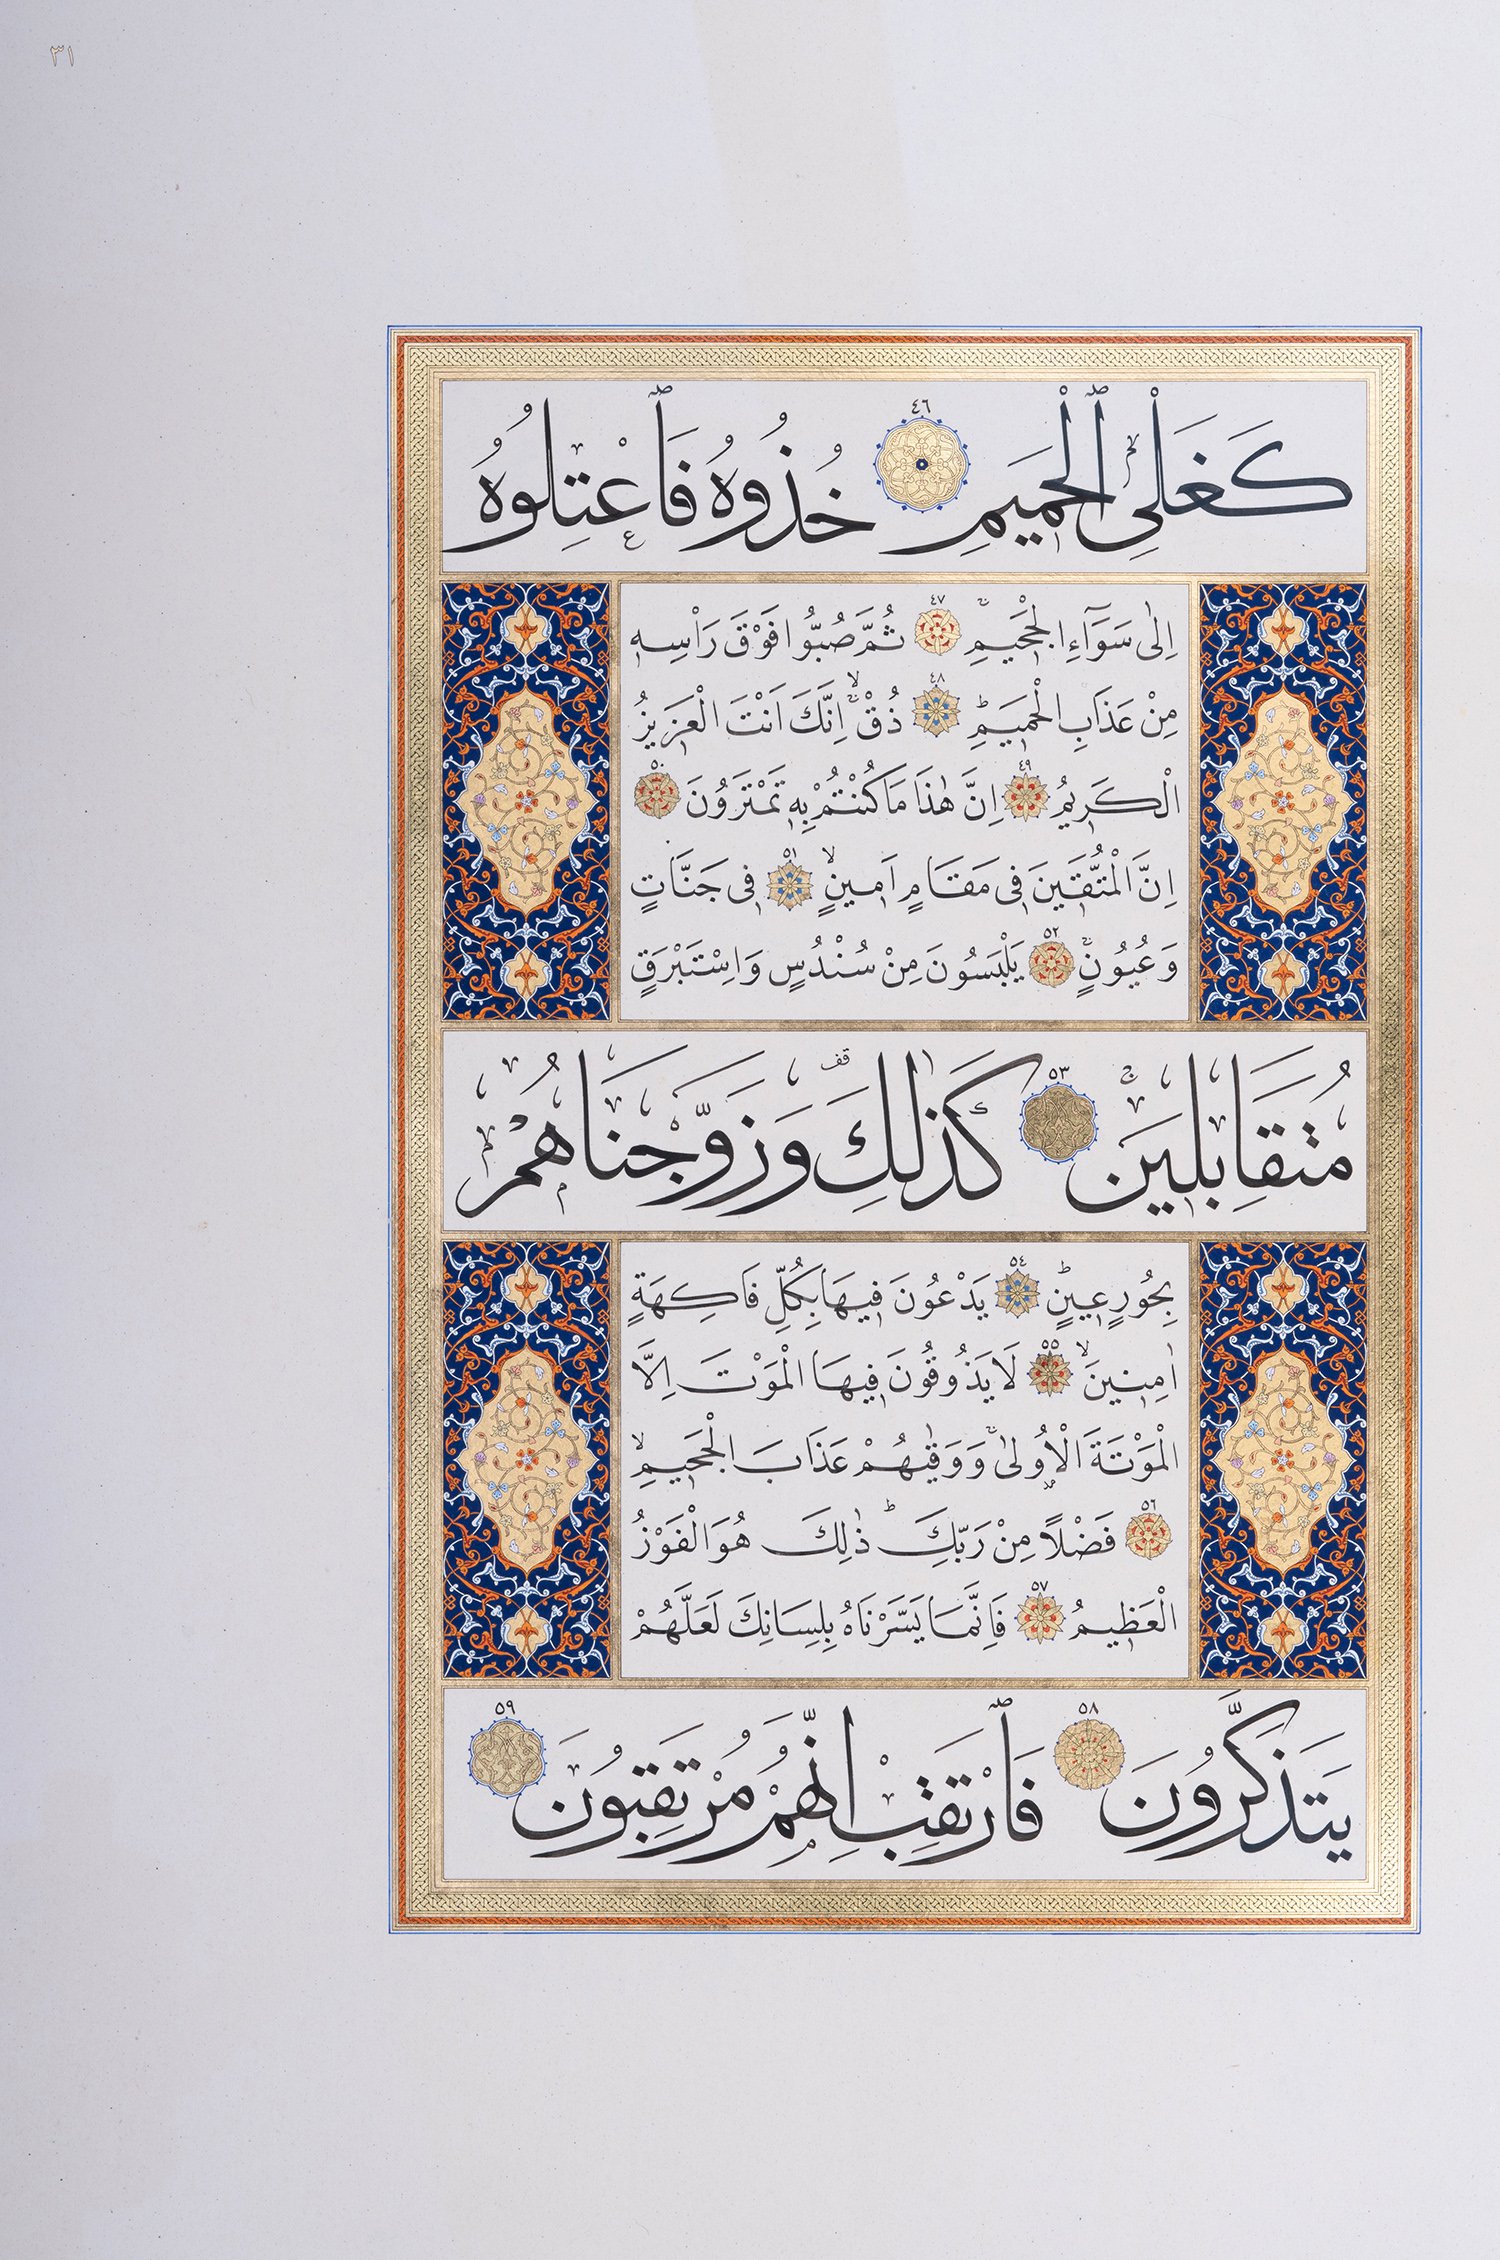 ٣١
كَغَلْىِ ٱلْحَمِيمِ ٤٦ خُذُوهُ فَٱعْتِلُوهُ
اِلٰى سَوَٓاءِ الْجَحِيمِ ٤٧ ثُمَّ صُبُّوا فَوْقَ رَاْسِهِ
مِنْ عَذَابِ الْحَمِيمِ ٤٨ ذُقْ اِنَّكَ اَنْتَ الْعَزِيزُ
الْكَرِيمُ ٤٩ اِنَّ هٰذَا مَا كُنْتُمْ بِهِ تَمْتَرُونَ ٥٠
اِنَّ الْمُتَّقِينَ فِى مَقَامٍ اَمِينٍ ٥١ فِى جَنَّاتٍ
وَعُيُونٍ ٥٢ يَلْبَسُونَ مِنْ سُنْدُسٍ وَاِسْتَبْرَقٍ
مُتَقَابِلِينَ ٥٣ كَذٰلِكَ وَزَوَّجْنَاهُمْ
بِحُورٍ عِينٍ ٥٤ يَدْعُونَ فِيهَا بِكُلِّ فَاكِهَةٍ
اٰمِنِينَ ٥٥ لَا يَذُوقُونَ فِيهَا الْمَوْتَ اِلَّا
الْمَوْتَةَ الْاُولٰى وَوَقٰيهُمْ عَذَابَ الْجَحِيمِ
٥٦ فَضْلًا مِنْ رَبِّكَ ذٰلِكَ هُوَ الْفَوْزُ
الْعَظِيمُ ٥٧ فَاِنَّمَا يَسَّرْنَاهُ بِلِسَانِكَ لَعَلَّهُمْ
يَتَذَكَّرُونَ ٥٨ فَٱرْتَقِبْ اِنَّهُمْ مُرْتَقِبُونَ ٥٩